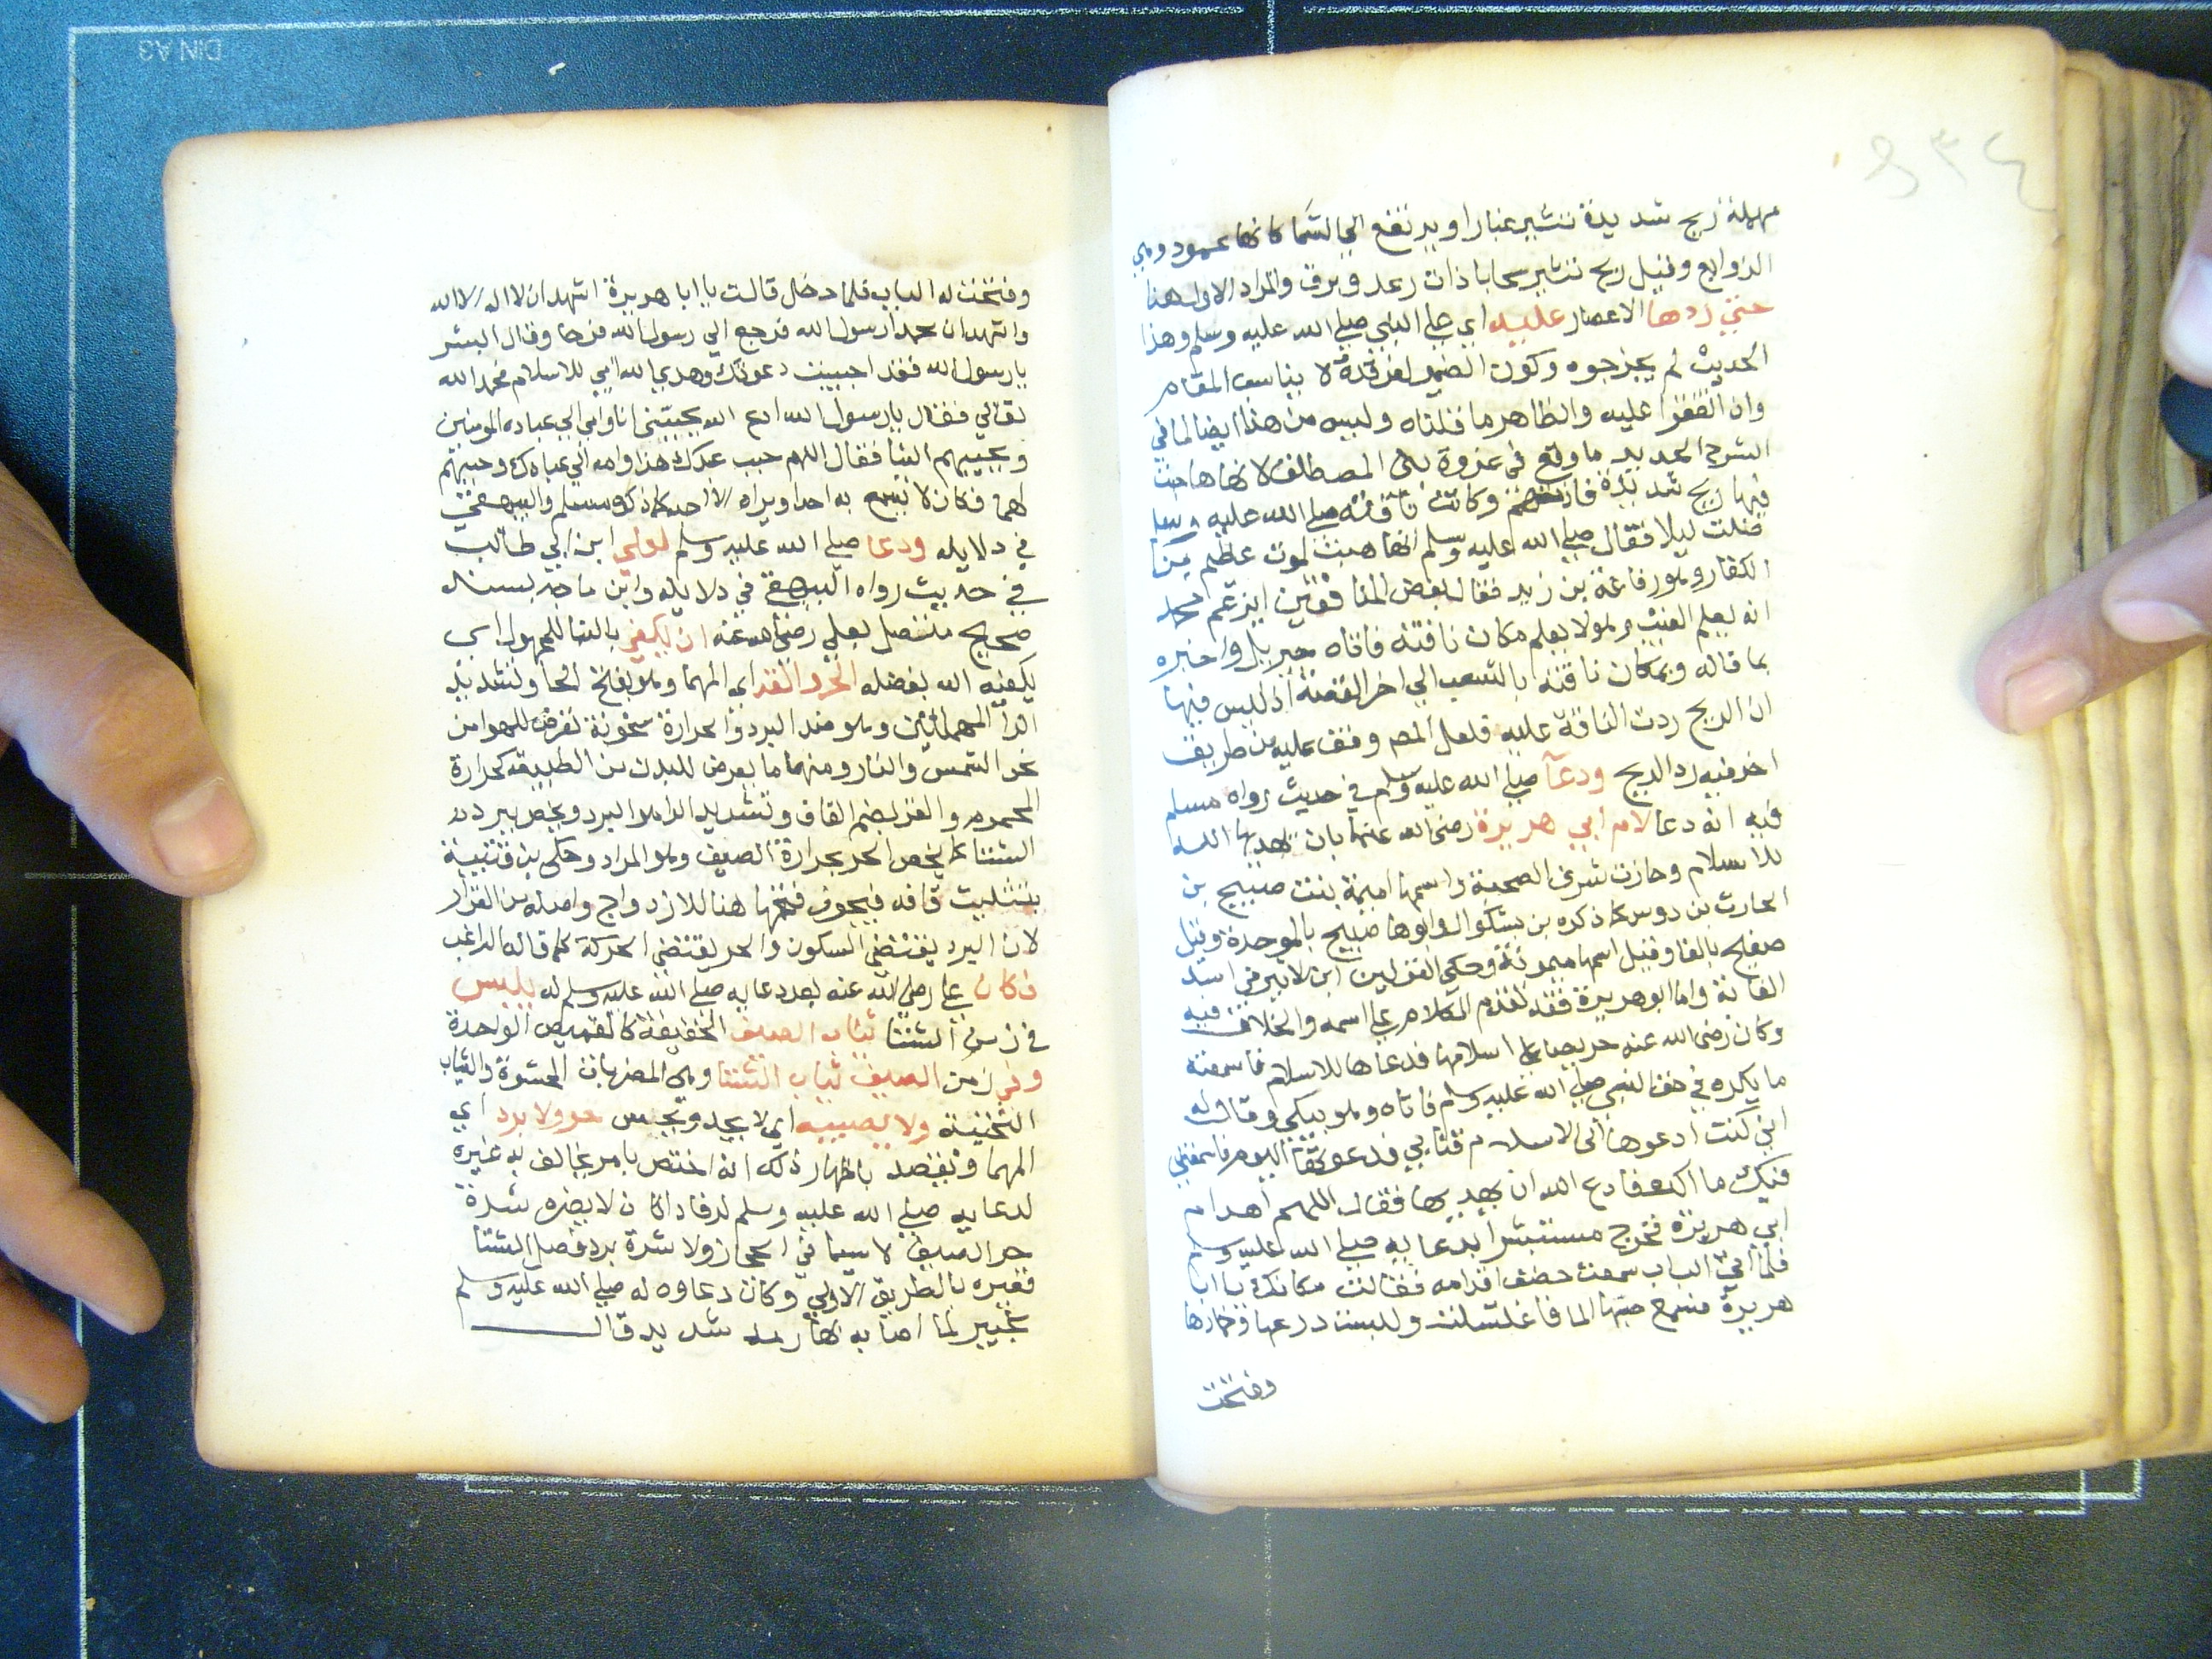 مهملة ريح شديدة تثير غبارا ويرتفع الي السما كانها عمود وهي
الزوابع وقيل ريح تثير سحابا ذات رعد وبرق والمراد الاول هنا
حتي ردها الاعصار عليه اي علي النبي صلي الله عليه وسلم وهذا
الحديث لم يخرجوه وكون الضمير لغزوة لا يناسب المقام
وان اقتصروا عليه والظاهر ما قلناه وليس من هذا ايضا لما في
الشرح الجديد ما وقع في غزوة بني المصطلق لانها هاجت
فيها ريح شديدة وكانت ناقته صلي الله عليه وسلم
ضلت ليلا فقال صلي الله عليه وسلم انها هبت لموت عظيم من
الكفار وهو رفاعة بن زيد فقال بعض المنافقين ايزعم
انه يعلم الغيب وهو لا يعلم مكان ناقته فاتاه جبريل واخبره
بما قاله وبمكان ناقته بالشعب الي اخر القصة اذ ليس فيها
ان الريح ردت الناقة عليه فلعل المص وقف عليه من طريق
اخر فيه رد الريح ودعا صلي الله عليه وسلم في حديث رواه مسلم
فيه انه دعا لام ابي هريرة رضي الله عنها بان يهديها الله
للاسلام وحازت شرف الصحبة واسمها اميمة بنت صبيح بن
الحارث بن دوس كما ذكره بن بشكوال وابوها صبيح بالموحدة وقيل
صفيح بالفا وقيل اسمها ميمونة وحكي القولين ابن الاثير في اسد
الغابة واما ابو هريرة فقد تقدم الكلام علي اسمه والخلاف فيه
وكان رضي الله عنه حريصا علي اسلامها فدعاها للاسلام فاسمعته
ما يكره في حق النبي صلي الله عليه وسلم فاتاه وهو يبكي وقال له
اني كنت ادعوها الي الاسلام فتابي فدعوتها اليوم فاسمعتني
فيك ما اكره فادع الله ان يهديها فقال اللهم اهد ام
ابي هريرة فخرج مستبشرا بدعايه صلي الله عليه وسلم
فلما اتي الباب سمعت خشف اقدامه فقالت مكانك يا ابا
هريرة فسمع صبها الما فاغتسلت ولبست درعها وخمارها
وفتحت
وفتحت له الباب فلما دخل قالت يا ابا هريرة اشهد ان لا اله الا الله
واشهد ان محمدا رسول الله فرجع الي رسول الله فرحا وقال ابشر
يا رسول الله فقد اجيبت دعوتك وهدي الله امي للاسلام فحمد الله
تعالي فقال يا رسول الله ادع الله يحببني انا وامي الي عباده المومنين
ويحببهم الينا فقال اللهم حبب عبدك هذا وامه الي عبادك وحببهم
لهما فكان لا يسمع به احد او يراه الا احبه كما ذكره مسلم والبيهقي
في دلايله ودعا صلي الله عليه وسلم لعلي ابن ابي طالب
في حديث رواه البيهقي في دلايله وابن ماجة بسند
صحيح متصل لعلي رضي الله عنه ان يكفي بالبنا للمجهول اي
يكفيه الله بفضله الحر والقر اي المهما وهو بفتح الحا وتشديد
الرا المهملتين وهو ضد البرد والحرارة سخونة تعرض للهوا من
نحو الشمس والنار ومنهما ما يعرض للبدن من الطبيعة كحرارة
المحموم والقر بضم القاف وتشديد الرا هو البرد ويخص ببرد
الشتا كما يخص الحر بحرارة الصيف وهو المراد وحكي بن قتيبة
بتثليث قافه فيجوز فتحها هنا للازدواج واصله من القرار
لان البرد يقتضي السكون والحر يقتضي الحركة كما قاله الراغب
فكان علي رضي الله عنه بعد دعايه صلي الله عليه وسلم له يلبس
في زمن الشتا ثياب الصيف الخفيفة كالقميص الواحدة
وفي زمن الصيف ثياب الشتا وهي المضربات المحشوة والثياب
الثخينة ولا يصيبه اي لا يجد ويحس حر ولا برد اي
المهما وتقصد باظهار ذلك انه اختص بامر يخالف به غيره
لدعايه صلي الله عليه وسلم له فاذا كان لا يضره شدة
حر الصيف لا سيما في الحجاز ولا شدة برد فصل الشتا
فغيره بالطريق الاولي وكان دعاوه له صلي الله عليه وسلم
بخيبر لما اصابه بها رمد شديد قال